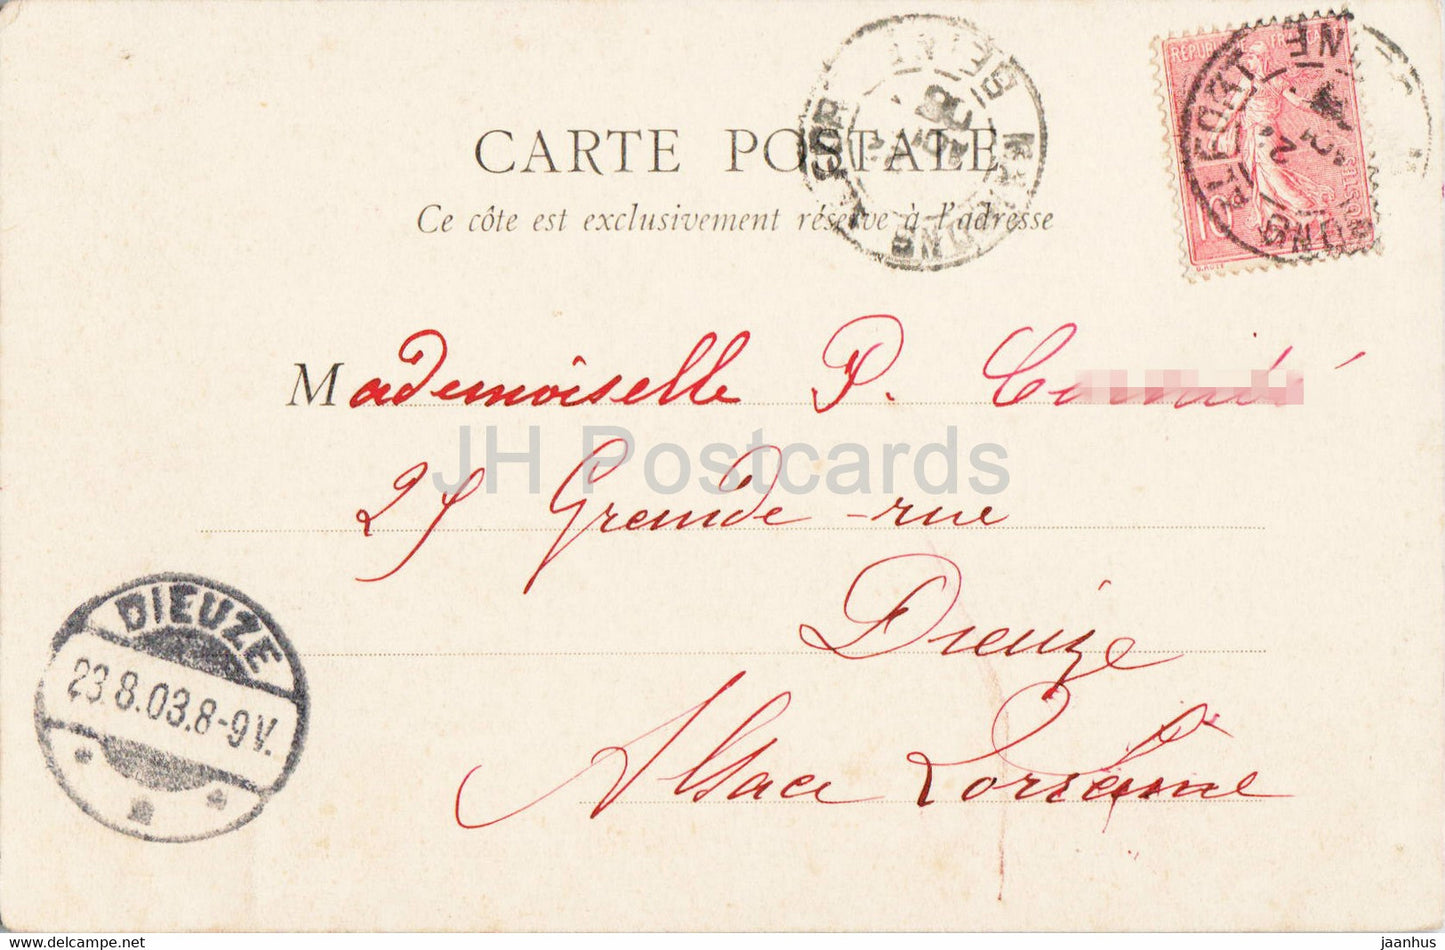 CARTE POSTALE
Ce côte est exclusivement réservé à l'adresse
RÉPUBLIQUE FRANÇAISE
10
Mademoiselle P.
JH Postcards
25 Grande-rue
Dieuze
Alsace Lorraine
DIEUZE
23.8.03.8-9V.
jaanhus www.delcampe.net